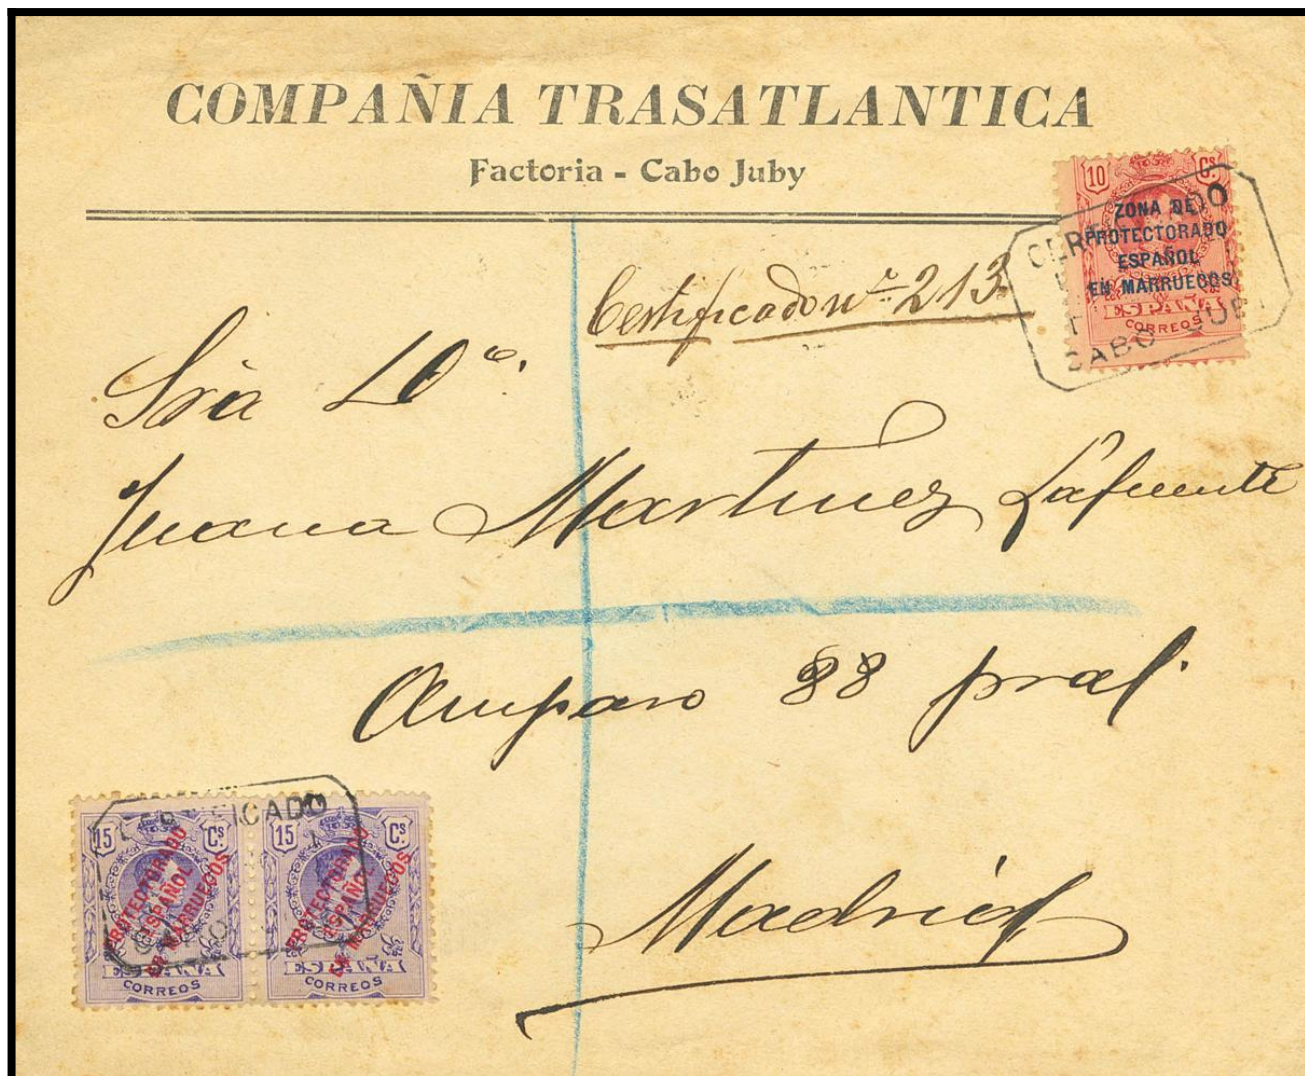 COMPAÑIA TRASATLANTICA
Factoria - Cabo Juby
10 Cs
ZONA DE
PROTECTORADO
ESPAÑOL
EN MARRUECOS
ESPAÑA
CORREOS
CERTIFICADO
CABO JUBI
Certificado nº 213
Sra Dª.
Juana Martinez Lafuente
Amparo 88 pral.
Madrid
CERTIFICADO
15 Cs 15 Cs
PROTECTORADO PROTECTORADO
ESPAÑOL ESPAÑOL
EN MARRUECOS EN MARRUECOS
ESPAÑA ESPAÑA
CORREOS CORREOS